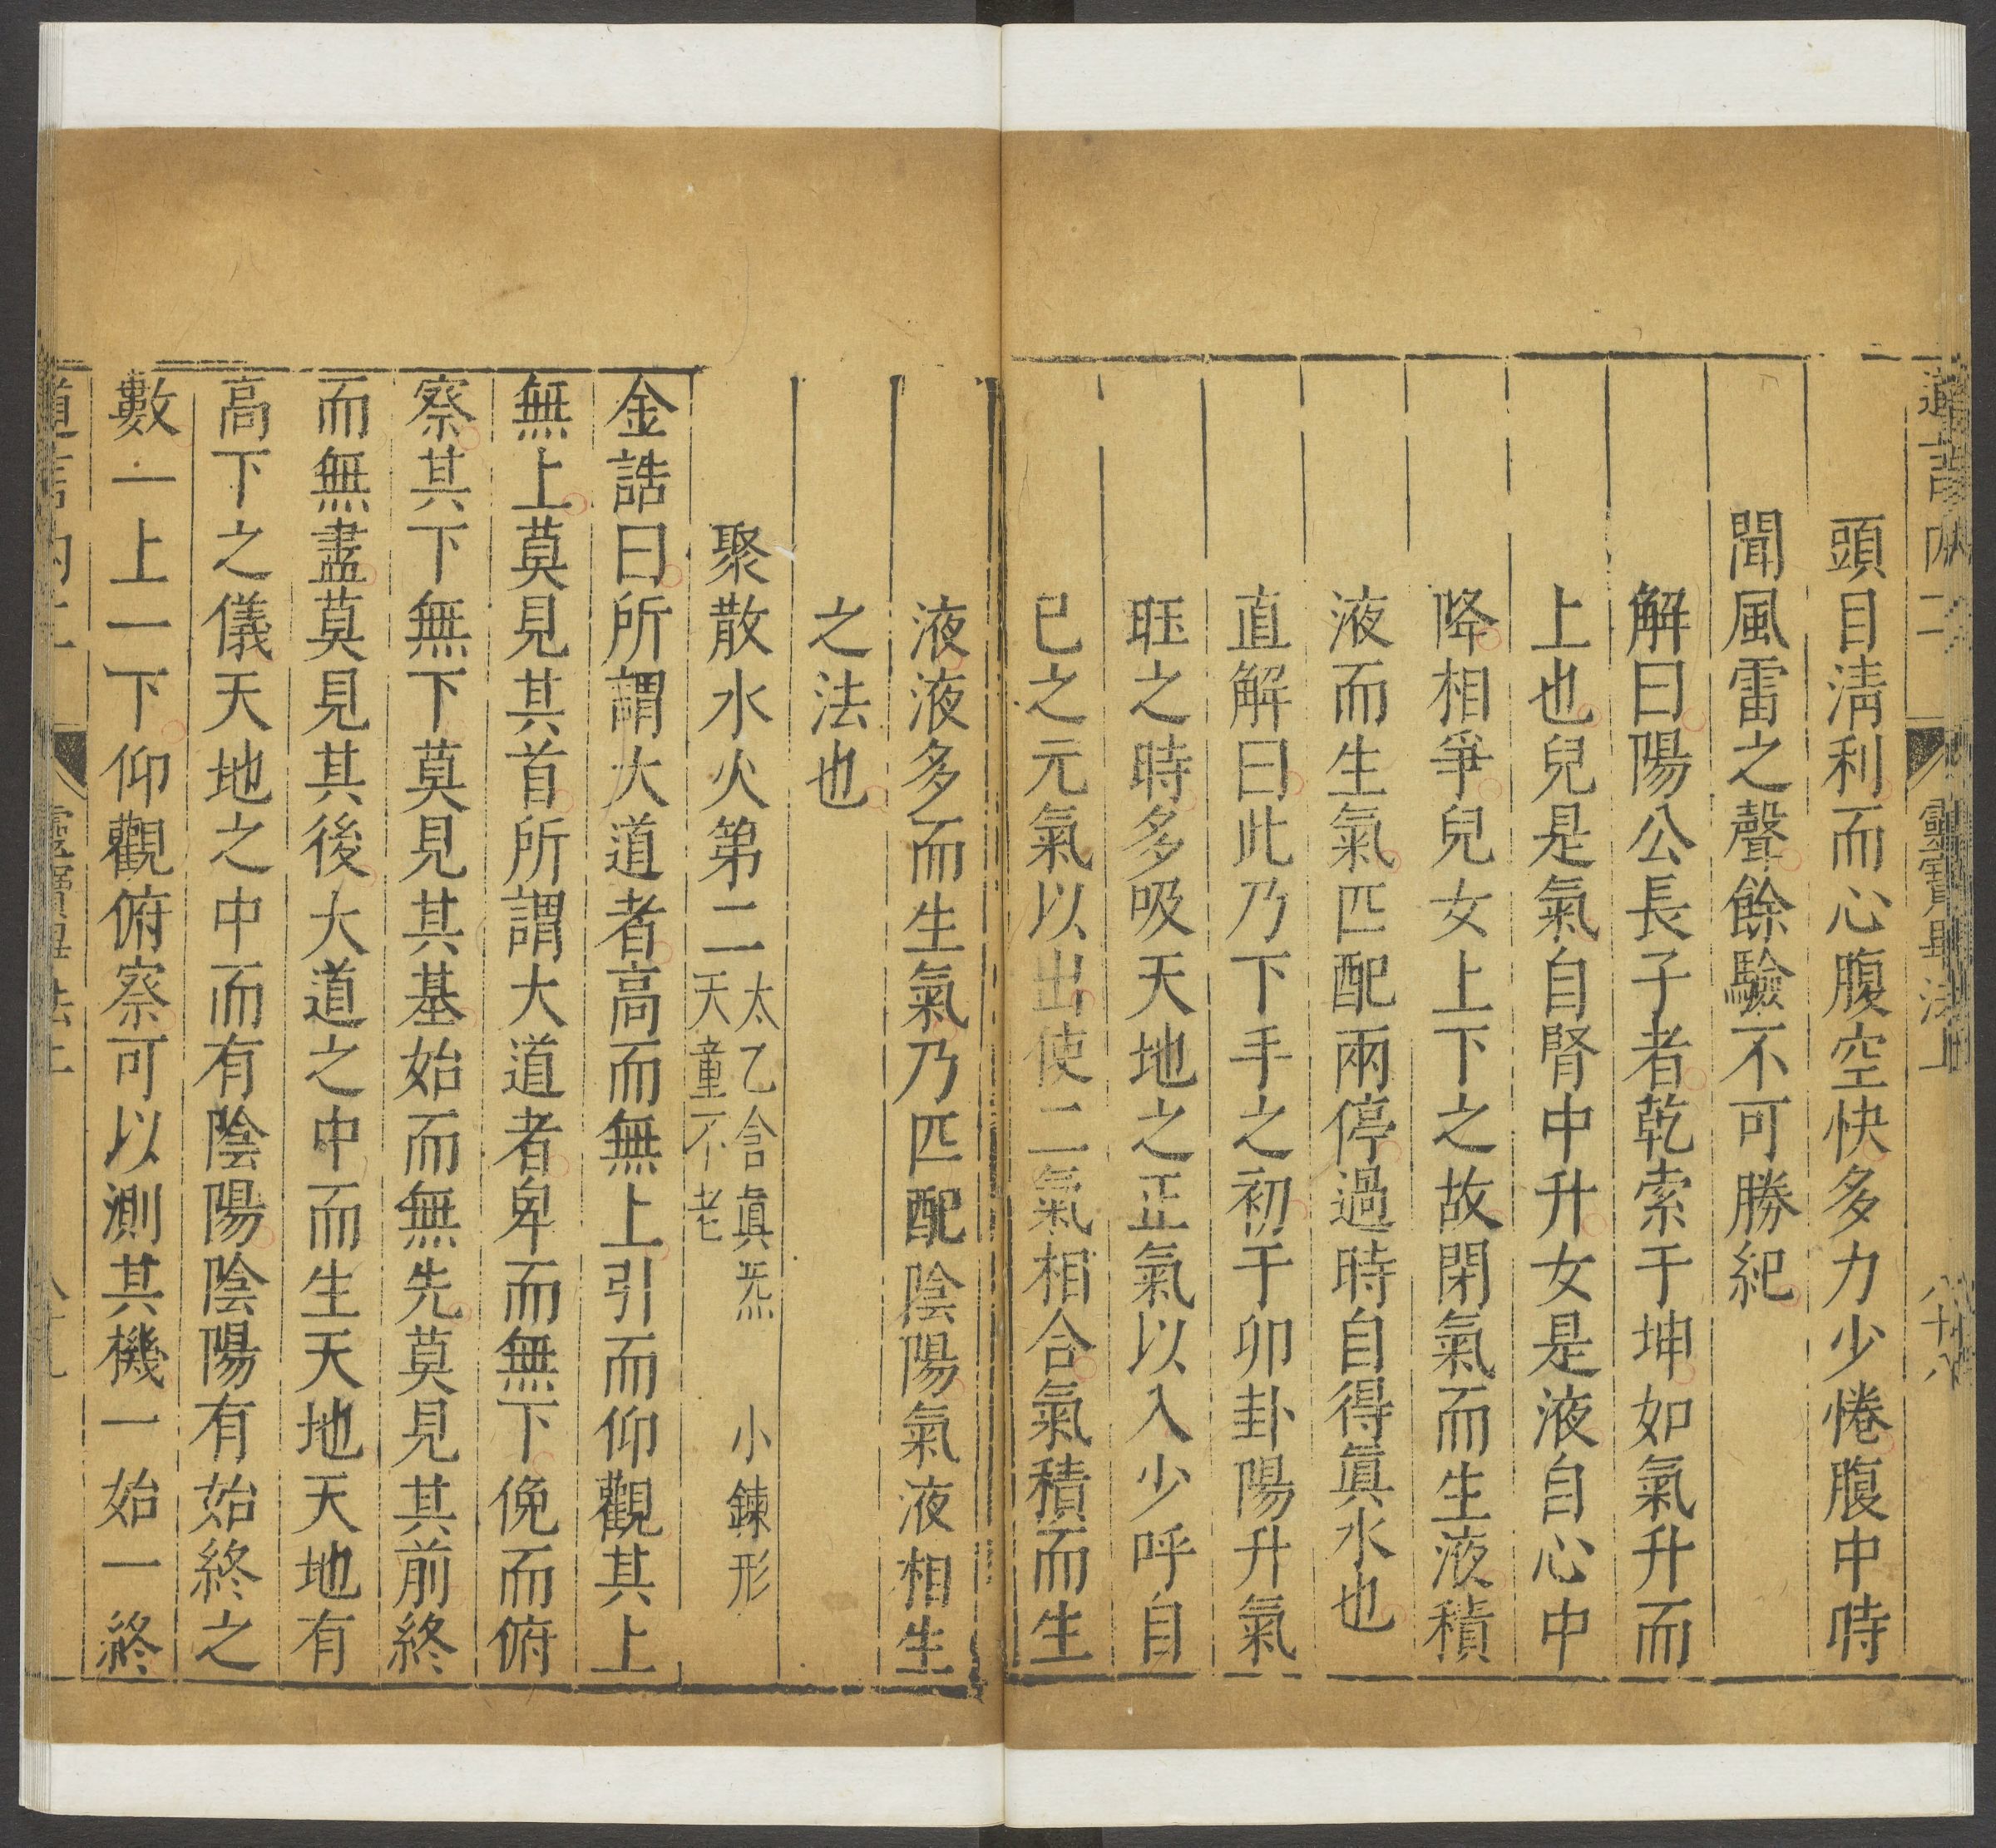 道言內二 靈寶畢法上 八十八
頭目淸利而心腹空快多力少惓腹中時
聞風雷之聲餘驗不可勝紀
解曰陽公長子者乾索于坤如氣升而
上也兒是氣自腎中升女是液自心中
降相爭兒女上下之故閉氣而生液積
液而生氣匹配兩停過時自得眞水也
直解曰此乃下手之初于卯卦陽升氣
旺之時多吸天地之正氣以入少呼自
已之元氣以出使二氣相合氣積而生
液液多而生氣乃匹配陰陽氣液相生
之法也
聚散水火第二 太乙含眞炁 天童不老 小鍊形
金誥曰所謂大道者高而無上引而仰觀其上
無上莫見其首所謂大道者卑而無下俛而俯
察其下無下莫見其基始而無先莫見其前終
而無盡莫見其後大道之中而生天地天地有
高下之儀天地之中而有陰陽陰陽有始終之
數一上一下仰觀俯察可以測其機一始一終
道言內二 靈寶畢法上